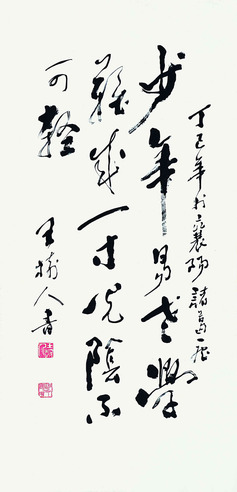 丁巳年於襄陽諸葛廬
少年易老學
難成一寸光陰不
可輕
王樹人書